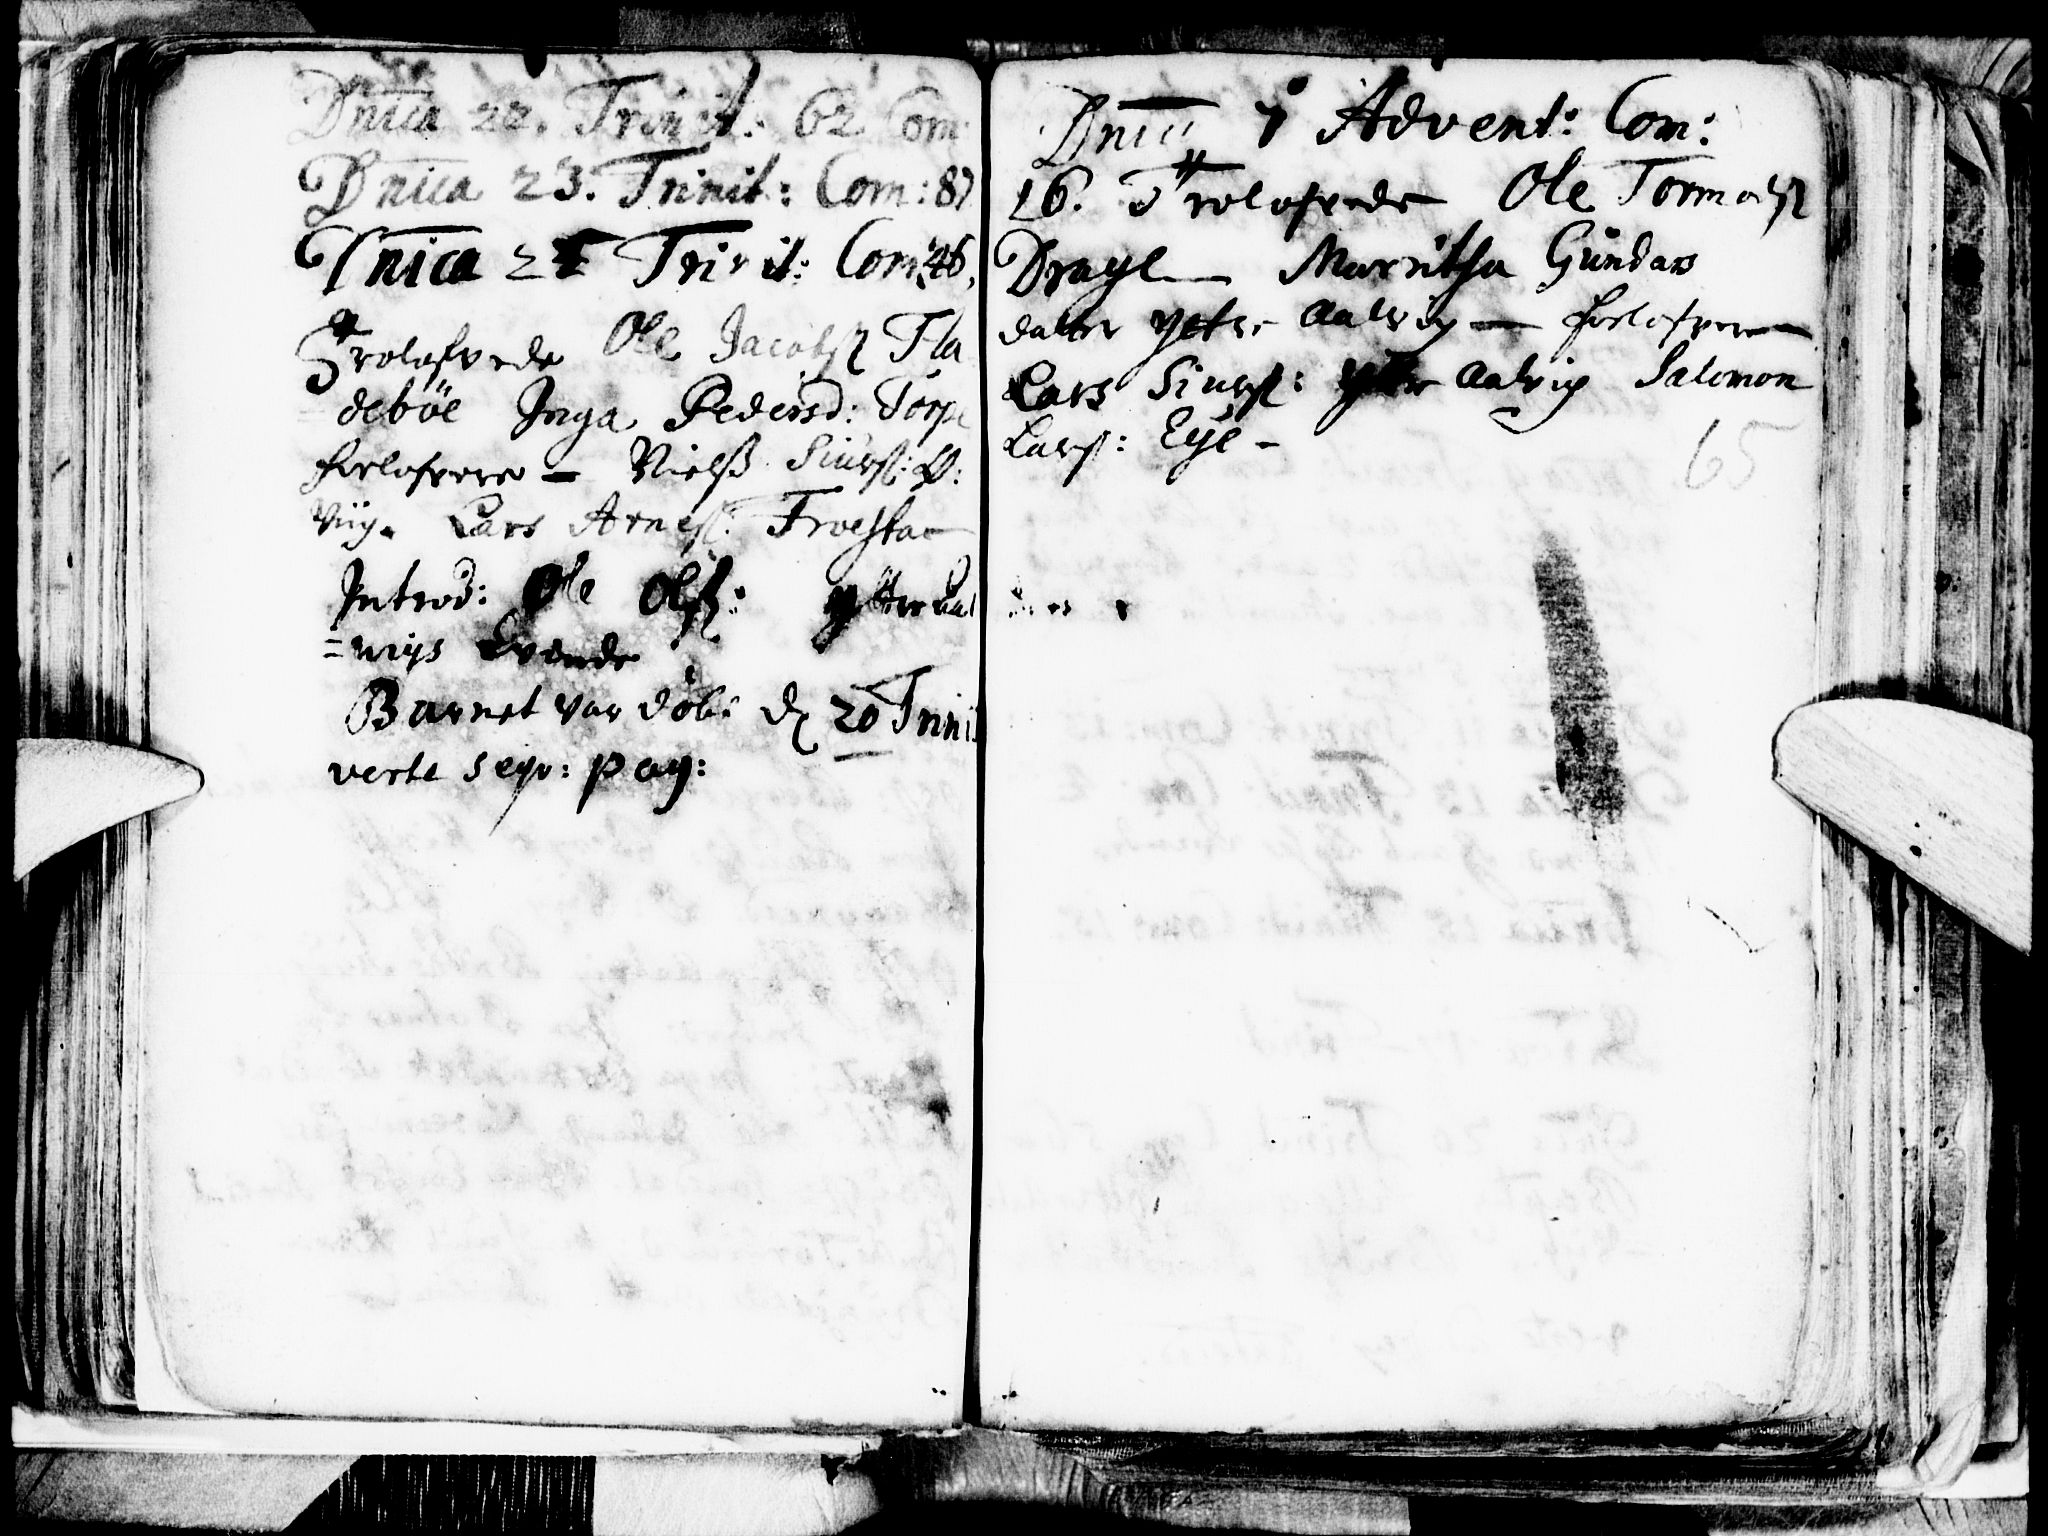 Dnica 22. Trinit: 62 Com:
Dnica 23. Trinit: Com: 87
Dnica 24 Trinit: Com: 46.
Trolofvede Ole Jacobß Fla
debøe Inga Pedersd: Torpe
forlofvere – Nielß Siurß: Ø:
Viig. Lars Arneß: Froesta
Introd: Ole Olß: ytter aal
=wigs Qvinde
Barnet var døb: d 20 Trinit
verte seqv: pag:
Dnica 1 Advent: Com:
16. Trolofvede Ole Tormodß
Drage – Maritha Gundars
datter ytre Aalvig – forlofvere –
Lars Siurß: ytre Aalvig Salomon
Larß: Eye –
65